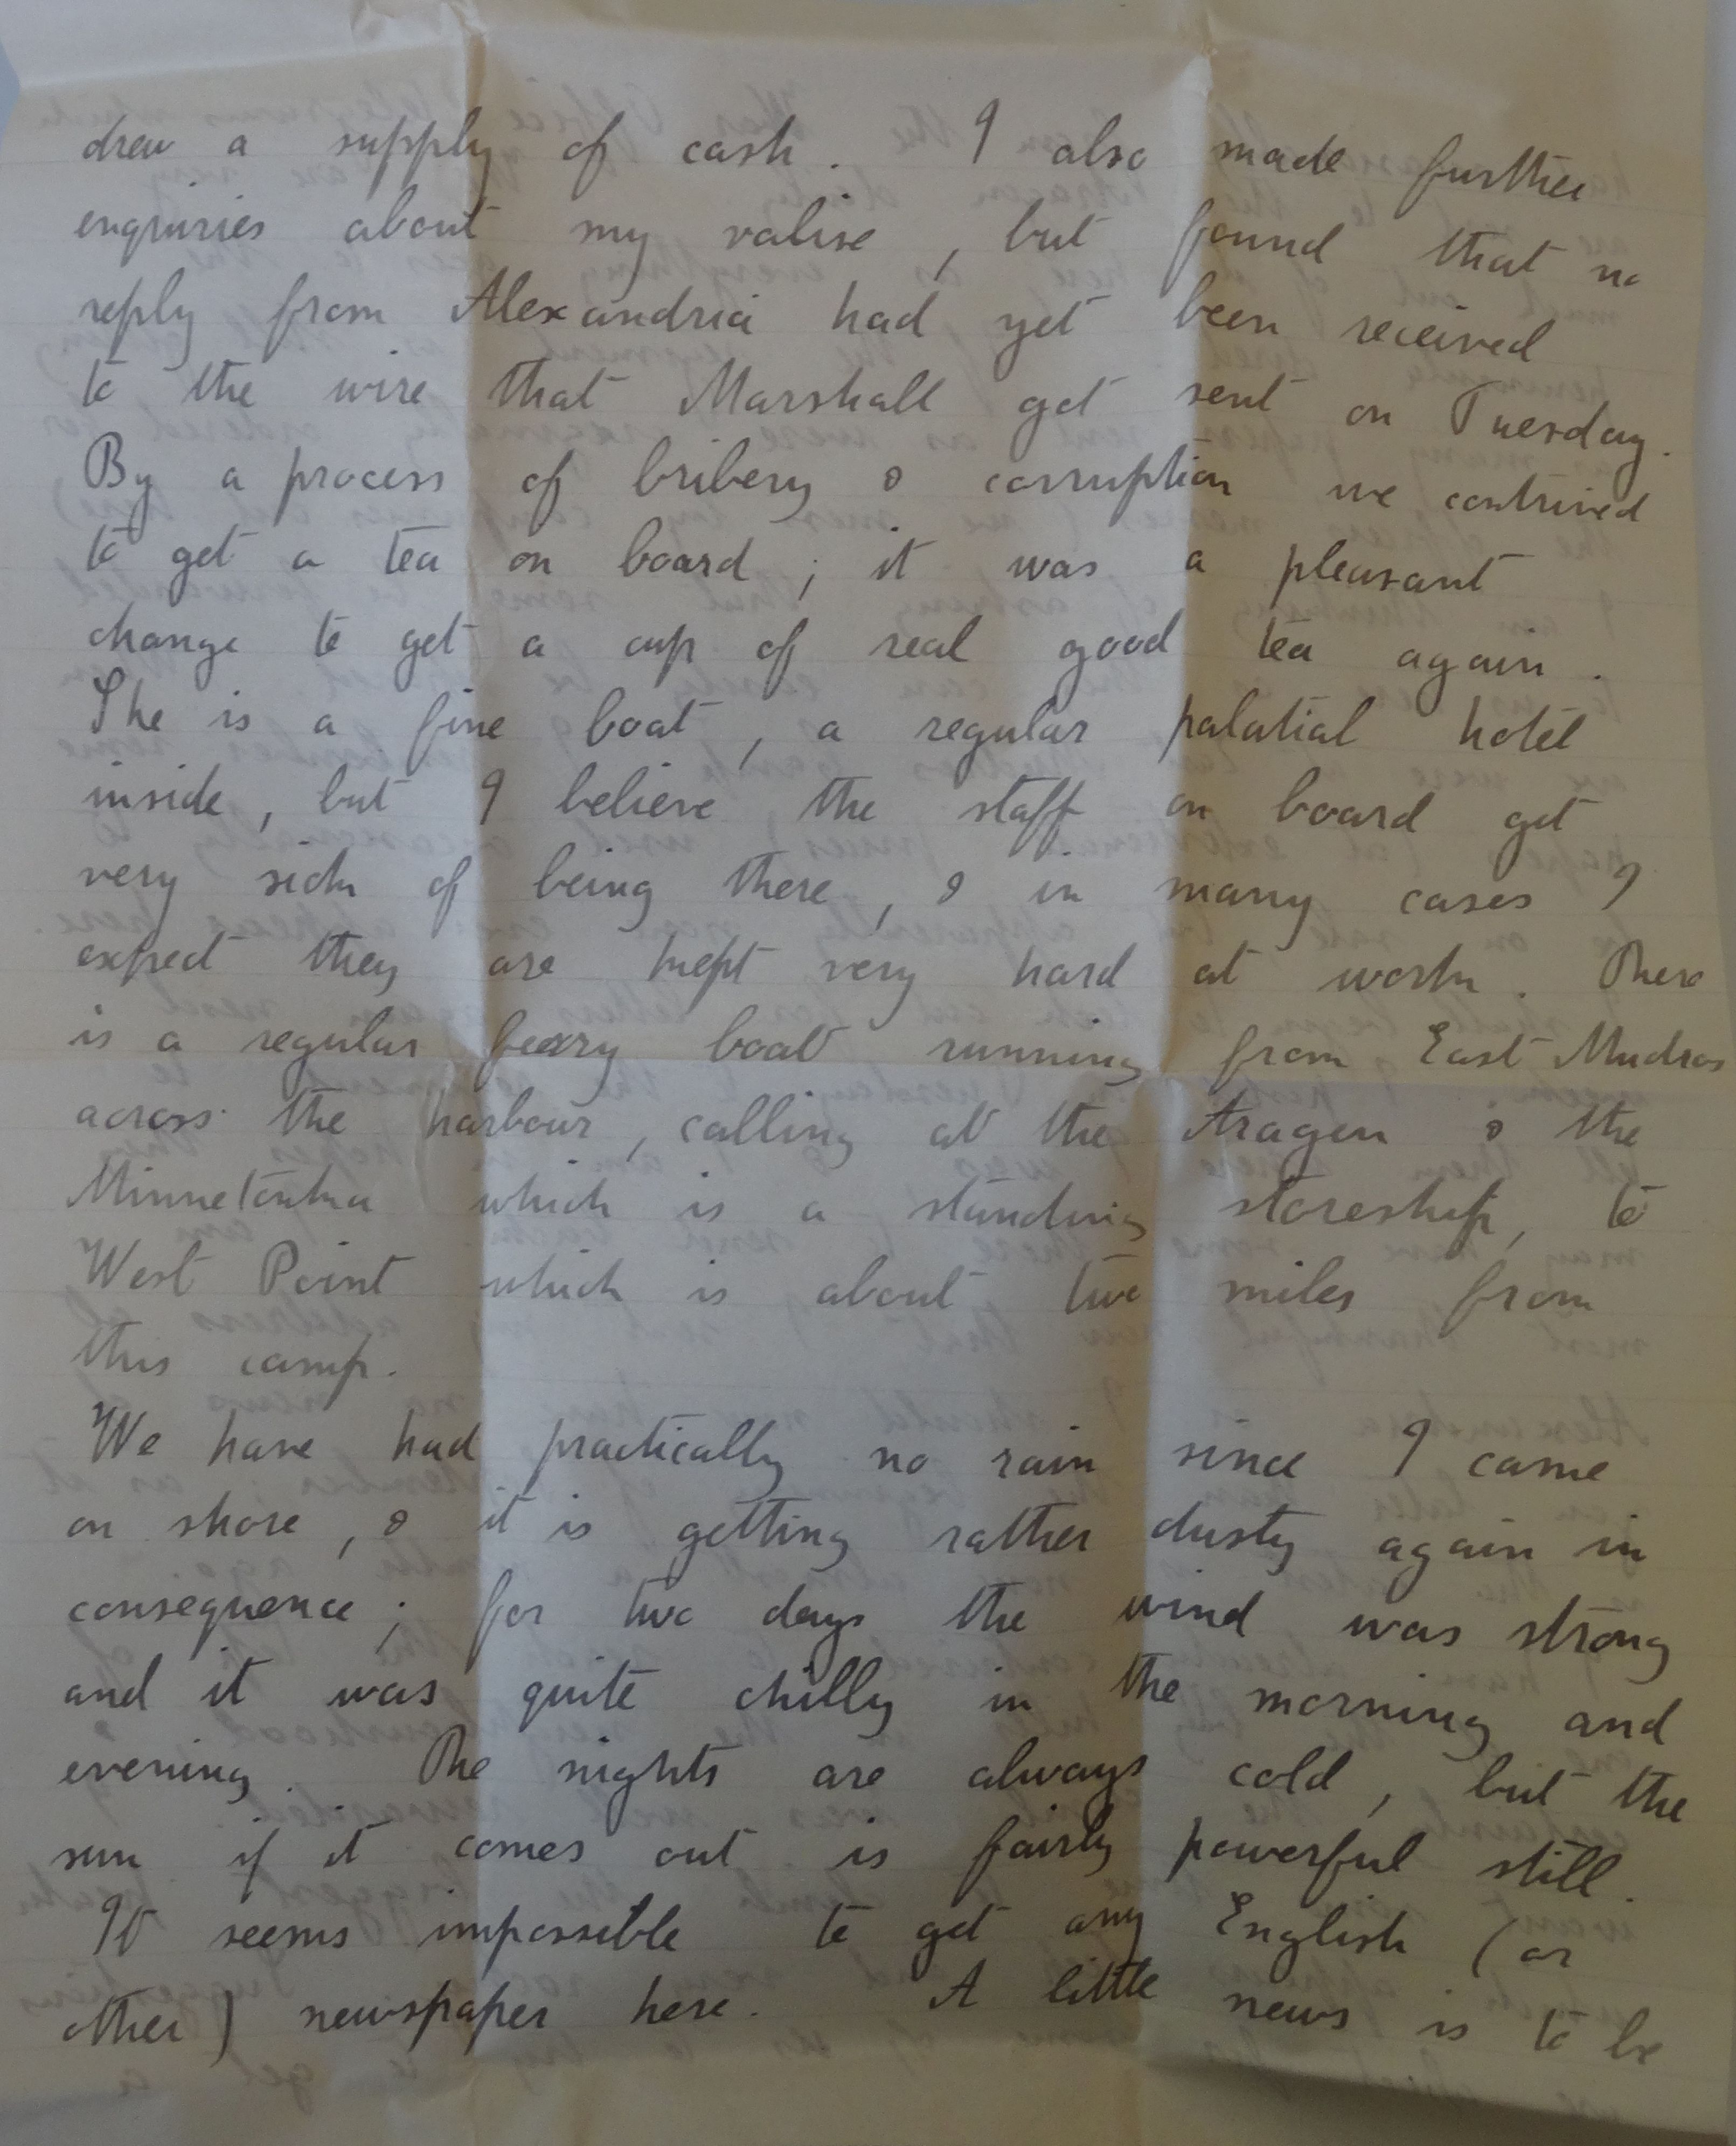 drew a supply of cash. I also made further
enquiries about my valise, but found that no
reply from Alexandria had yet been received
to the wire that Marshall got sent on Tuesday.
By a process of bribery & corruption we contrived
to get a tea on board; it was a pleasant
change to get a cup of real good tea again.
She is a fine boat, a regular palatial hotel
inside, but I believe the staff on board get
very sick of being there, & in many cases I
expect they are kept very hard at work. There
is a regular ferry boat running from East Mudros
across the harbour, calling at the Aragon & the
Minnetonka which is a standing storeship, to
West Point which is about two miles from
this camp.
We have had practically no rain since I came
on shore, & it is getting rather dusty again in
consequence; for two days the wind was strong
and it was quite chilly in the morning and
evening. The nights are always cold, but the
sun if it comes out is fairly powerful still.
It seems impossible to get any English (or
other) newspaper here. A little news is to be